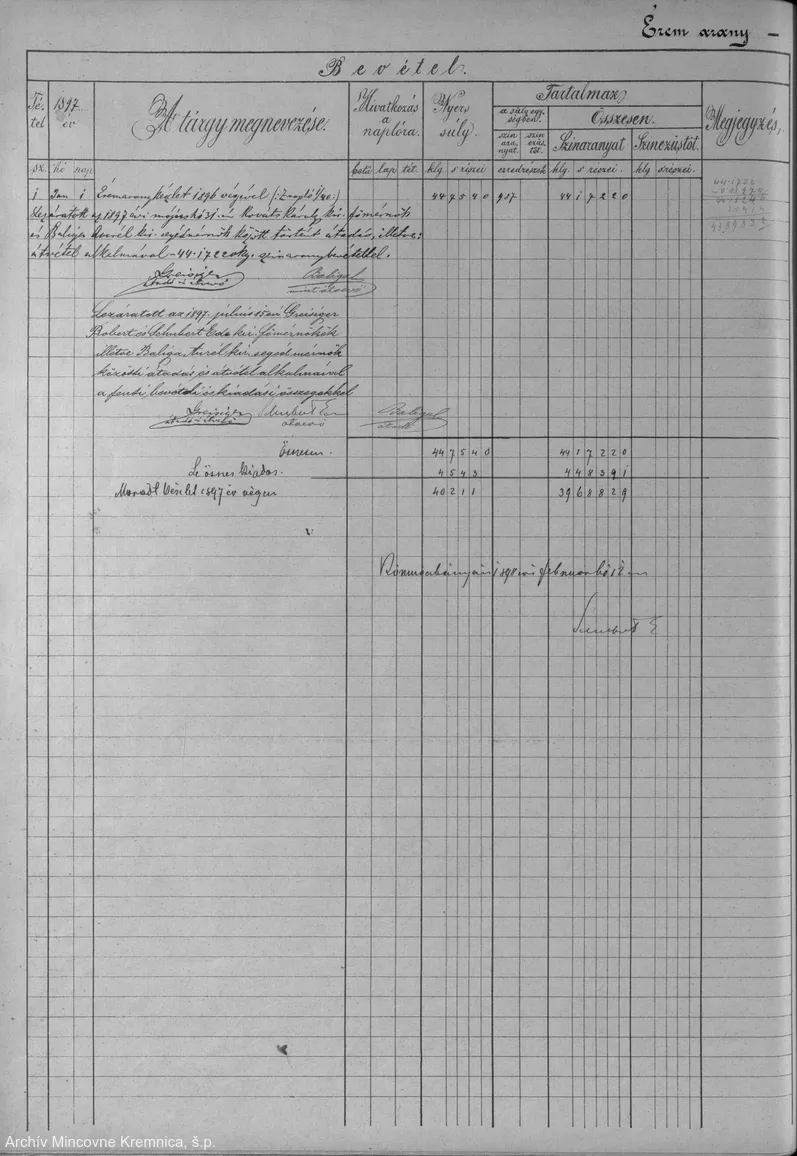 Érem arany —
Bevétel.
Tétel 1897 év A tárgy megnevezése. Hivatkozás a naplóra. Nyers súly. Tartalmaz Megjegyzés,
a súlyegységben. Összesen.
színaranyat. színezüstöt. Színaranyat Színezüstöt.
sz. hó nap betü lap tét. klg. s részei ezredrészek klg. s részei. klg. s részei.
1 Jan 1 Éremaranykészlet 1896 végével 44 7540 987 44 17220
Lezáratott az 1897 évi május hó 31-én Kováts Károly kir. főmérnök
és Baliga Aurél kir. segédmérnök között történt átadás, illetve:
átvétel alkalmával 44.1722 klg. színaranybevétellel.
Greisiger Baliga
átadó mint átvevő
Lezáratott az 1897. július 15én Greisiger
Robert és Schubert Ede kir. főmérnökök
illetve Baliga Aurél kir. segéd mérnök
közötti átadás és átvétel alkalmával
a fenti bevételi és kiadási összegekkel
Greisiger Schubert E Baliga
átvevő átadó
Összesen 44 7540 44 17220
Le összes kiadás. 4543 4 48391
Maradt készlet 1897 év végén 40 211 39 68829
Körmöczbányán 1898 évi februar hó 12 én
Schubert E
Archív Mincovne Kremnica, š.p.